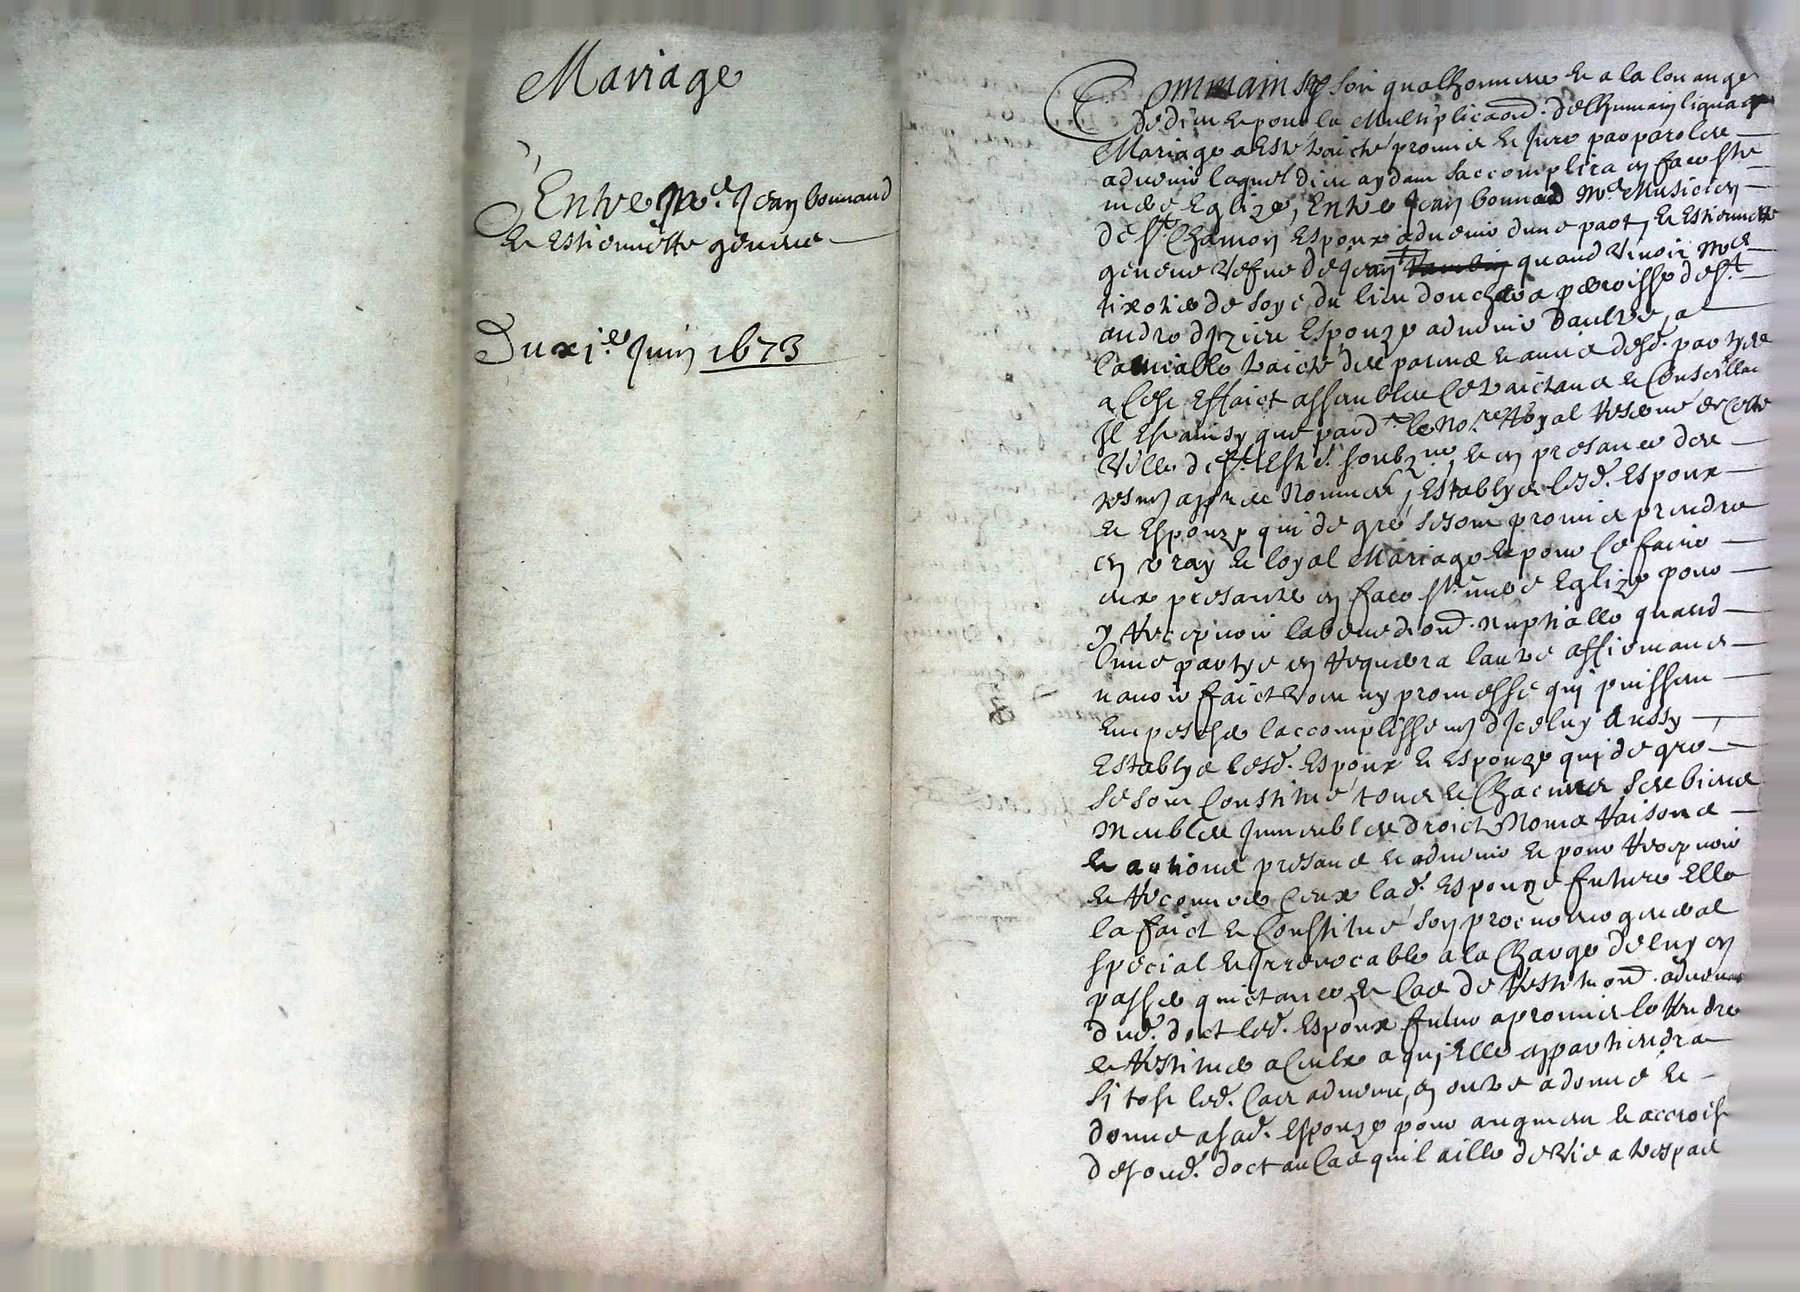 Mariage
Entre Me. Jean bonnard
Et Estiennette geneve
Du xje. Juin 1673
Comme ainsy soit qua lhonneur Et a la louange
de dieu Et pour la Multiplicaond. de lhumain lignage
Mariage a esté traicté promis Et Juré par paroles
advenir lequel dieu aydant saccomplira en face ste
mere Eglize, Entre Jean bonnard Me. Musicien
de st. Chamon Espoux advenir dune part, Et Estiennette
geneve vefve de Jean quand vivoit Me.
tixotier de soye du lieu paroisse de st.
andre Espouze advenir daultre, a
lamiable traicté des parens Et amis desd. partyes
a cest Effaict assemblez Ce traictant Et Conseillant
Il Est ainsy que pard. le Nore. Royal reservé de Cette
Ville de st. Este. soubzne. Et en presance des
tesmn appres Nommés, Establys lesd. Espoux
Et Espouze qui de gré se sont promis prendre
en vray Et loyal Mariage Et pour Ce faire
eux presanter en face ste. mere Eglize pour
y Recepvoir la benediond. nuptialle quand
lune partye en Requerra lautre affirmans
navoir faict voeu ny promesse qui puissent
Empescher laccomplissemn dJceluy Aussy
Establys lesd. Espoux Et Espouze qui de gré
se sont Constitué tous Et Chacuns ses biens
Meubles Jmmeubles droictz Noms Raisons
Et actions presans Et advenir Et pour Recepvoir
Et Recouvrer Ceux lad. Espouze future Elle
la faict Et Constitué son procureur general
special Et Jrrevocable a la Charge de luy en
passer quictance Et Cas de Restitutiond. advenant
dud. doct led. Espoux futur a promis le Rendre
Et Restituer a Ceulx a qui Elle appartiendra
si tost led. Cas advenu, en outre a donné Et
donne a sad. Espouze pour augment Et accroist
de sond. doct au Cas quil aille de vie a trespas